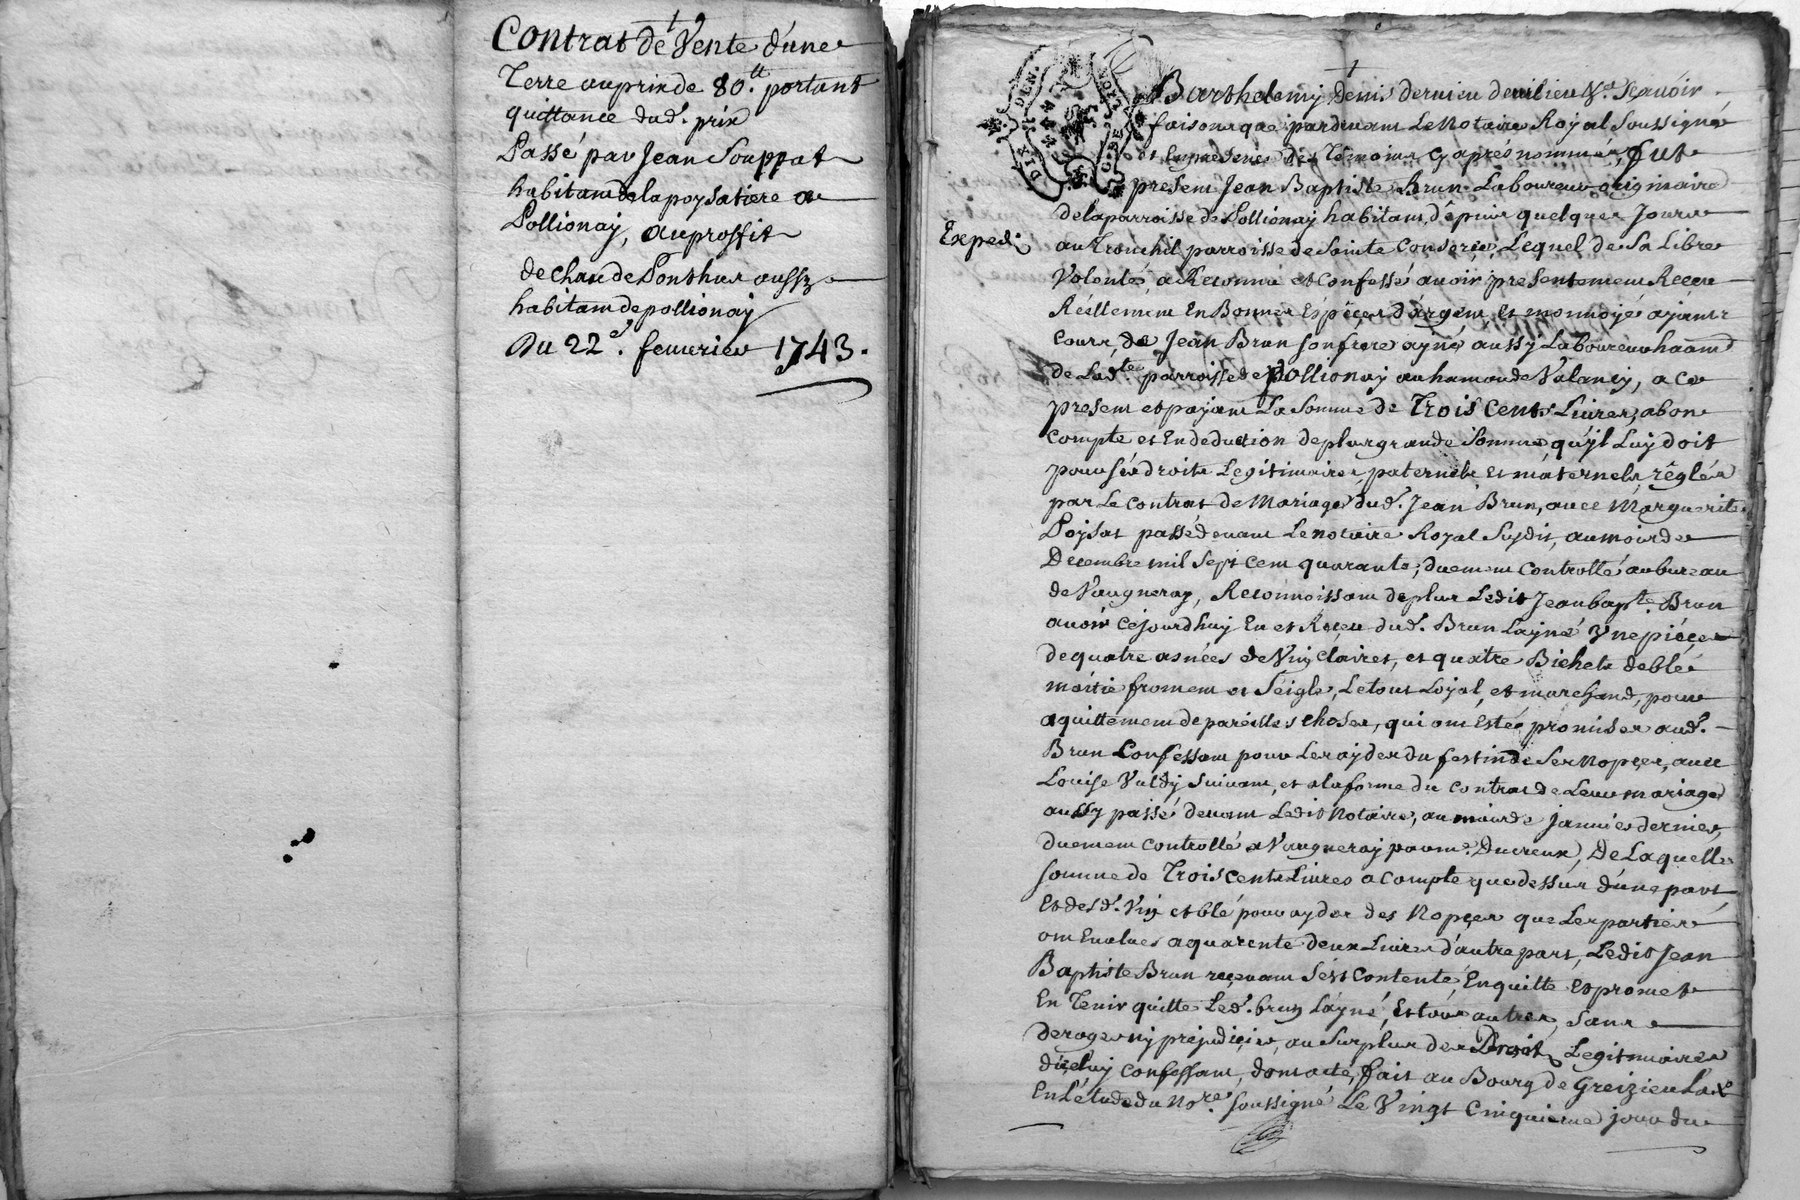 Contrat de Vente d'une
Terre au prix de 80.tt portant
quittance dud. prix
Passé par Jean Souppat
habitant de la poysatiere a
Pollionay, au proffit
de Claude Ponthus aussy
habitant de pollionay
Du 22e. feuvrier 1743.
Barthelemy Denis dernieu
faisons que pardevant Le Notaire Royal Soussigné
et En presence des Témoins cy après nommés, fut
present Jean Baptiste Brun Laboureur originaire
de la parroisse de Pollionay habitant, dépuis quelques Jours
Exped.
au Tronchil parroisse de Sainte Consorce, Lequel de Sa Libre
Volonté, a Reconnu et Confessé avoir presentement Receu
Réellement En Bonnes Espéces d'argent et monnoyé ayant
Cours, de Jean Brun son frere ayné aussy Laboureur
de Ladte. parroisse de Pollionay au hamau de Valancy, a ce
present et payant La Somme de Trois Cents Livres, a bon
Compte et En deduction de plus grande Somme qu'jl Luy doit
pour sés droits Legitimaires paternels et maternels réglés
par Le Contrat de Mariage dud. Jean Brun, avec Marguerite
Poysat passé devant Le notaire Royal Susdit, au mois de
Decembre mil Sept Cent quarante, duement Controllé au bureau
de Vaugneray, Reconnoissant de plus Ledit Jean bapte. Brun
avoir Cejourdhuy Eu et Receu dud. Brun Layné Vne piéce
de quatre asnées de Vin Clairet, et quatre Bichets de blé
moitié froment et Seigle, Le tout Loyal et marchand, pour
aquittement de pareilles choses, qui ont Esté promises aud.
Brun Confessant pour Les ayder du festin de Ses Nopces, avec
Louise Valdy Suivant, et a la forme du Contrat de Leur mariage
aussy passé devant Ledit Notaire, au mois de janvier dernier,
duement Controllé a Vaugneray par me. Ducreux, De Laquelle
somme de Trois Cents Livres a Compte que dessus d'une part
Et desd. Vin et blé pour ayder des Nopces que Les parties
ont Evalués a quarente deux Livres d'autre part, Ledit Jean
Baptiste Brun reçevant S'est Contenté, En quitte et promet
En Tenir quitte Led. brun L'ayné, Et tous autres, Sans
deroger ny prejudicier, au Surplus des Droits Legitimaires
diceluy Confessant, dont acte, fait au Bourg de Greizieu La
En L'étude du Nore. Soussigné Le Vingt Cinquieme jour du